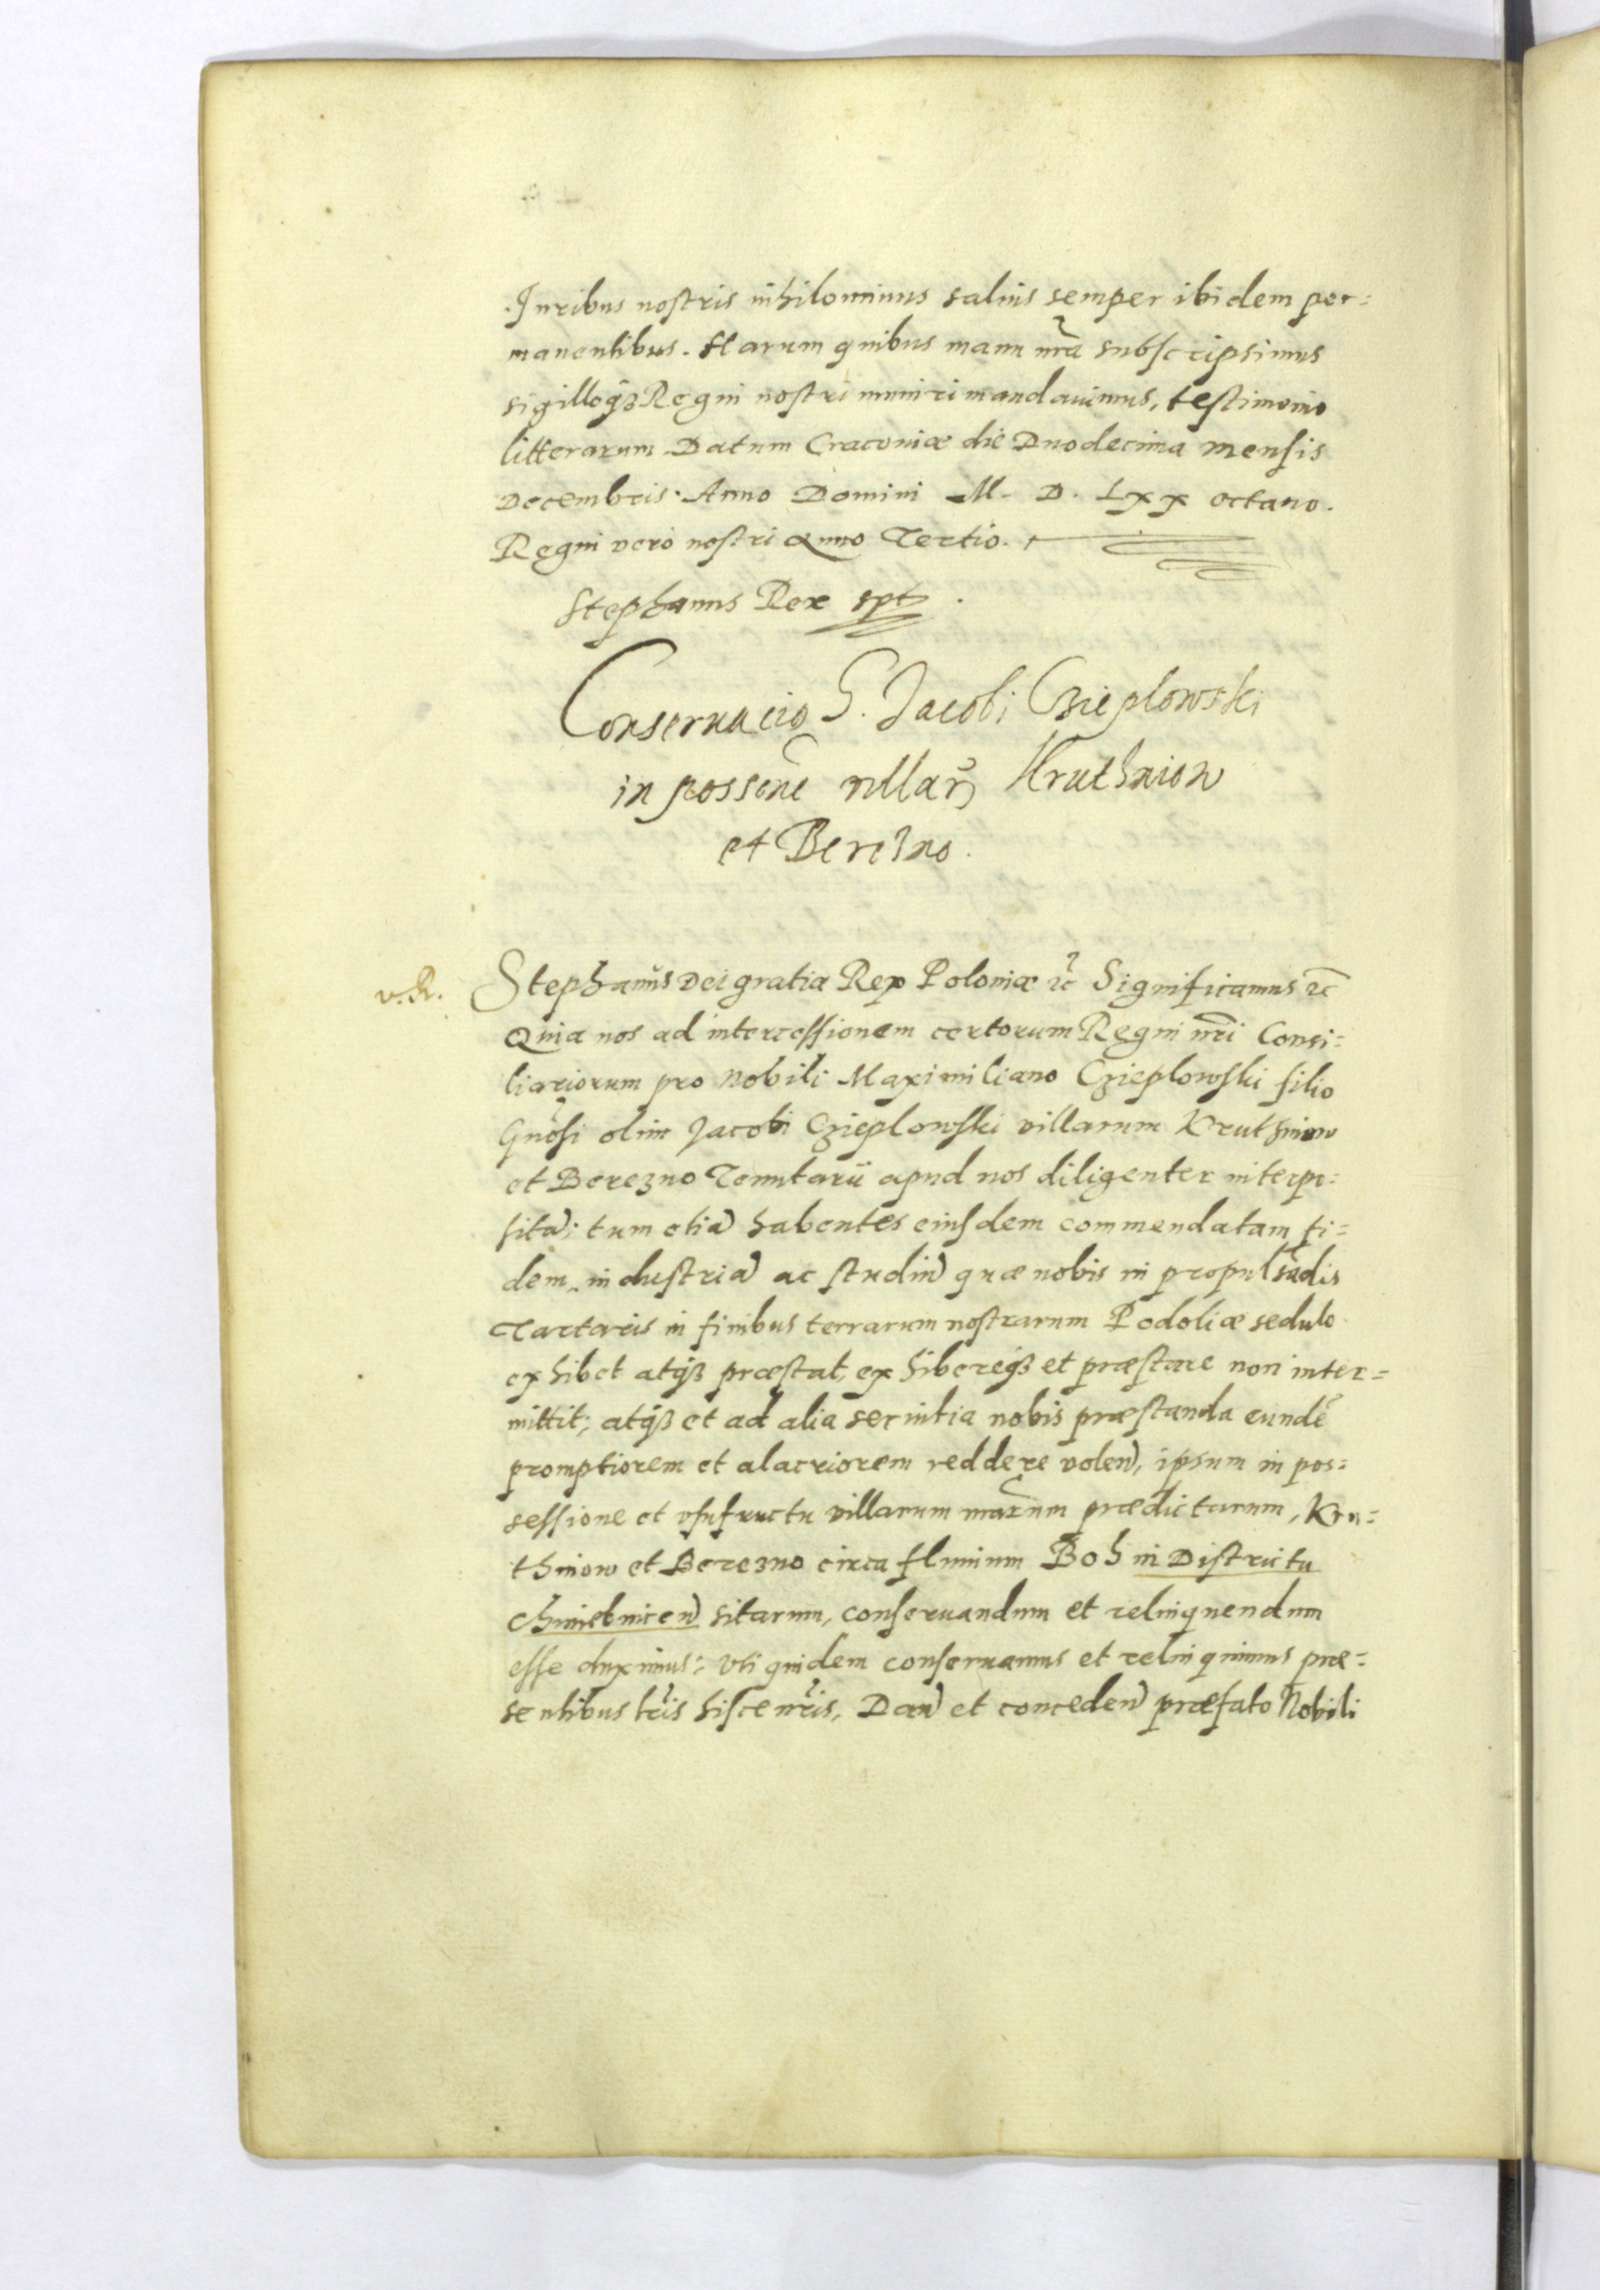 Iuribus nostris nihilominus saluis semper ibidem per=
manentibus. Harum quibus manu nrã subscripsimus
sigilloq3 Regni nostri muniri mandauimus, testimonio
litterarum Datum Cracouiæ die Duodecima mensis
Decembris. Anno Domini M. D. Lxx octauo.
Regni vero nostri Anno Tertio.
Stephanus Rex spt.
Conseruacio G. Jacobi Czieplowski
in possone villar Kruthniow
et Berezno.
v. R.
Stephanus Dei gratia Rex Poloniæ etc Significamus etc
Quia nos ad intercessionem certorum Regni nri Consi=
liariorum pro Nobili Maximiliano Czieplowski filio
Gnosi olim Jacobi Czieplowski villarum Kruthniow
et Berezno Tenutarii apud nos diligenter interpo=
sita; tum etia habentes eiusdem commendatam fi=
dem, industria ac studiu quæ nobis in propulsadis
Tartaris in finibus terrarum nostrarum Podoliæ sedulo
exhibet atq3 præstat, exhibereq3 et præstare non inter=
mittit; atq3 et ad alia seruitia nobis præstanda eundẽ
promptiorem et alacriorem reddere volen, ipsum in pos=
sessione et vsufructu villarum nrarum prædictarum, Kru=
thniow et Berezno circa fluuium Boh in Districtu
Chmielnicen sitarum, conseruandum et relinquendum
esse duximus; vti quidem conseruamus et relinquimus præ=
sentibus lris hisce nris, Dan et conceden præfato Nobili